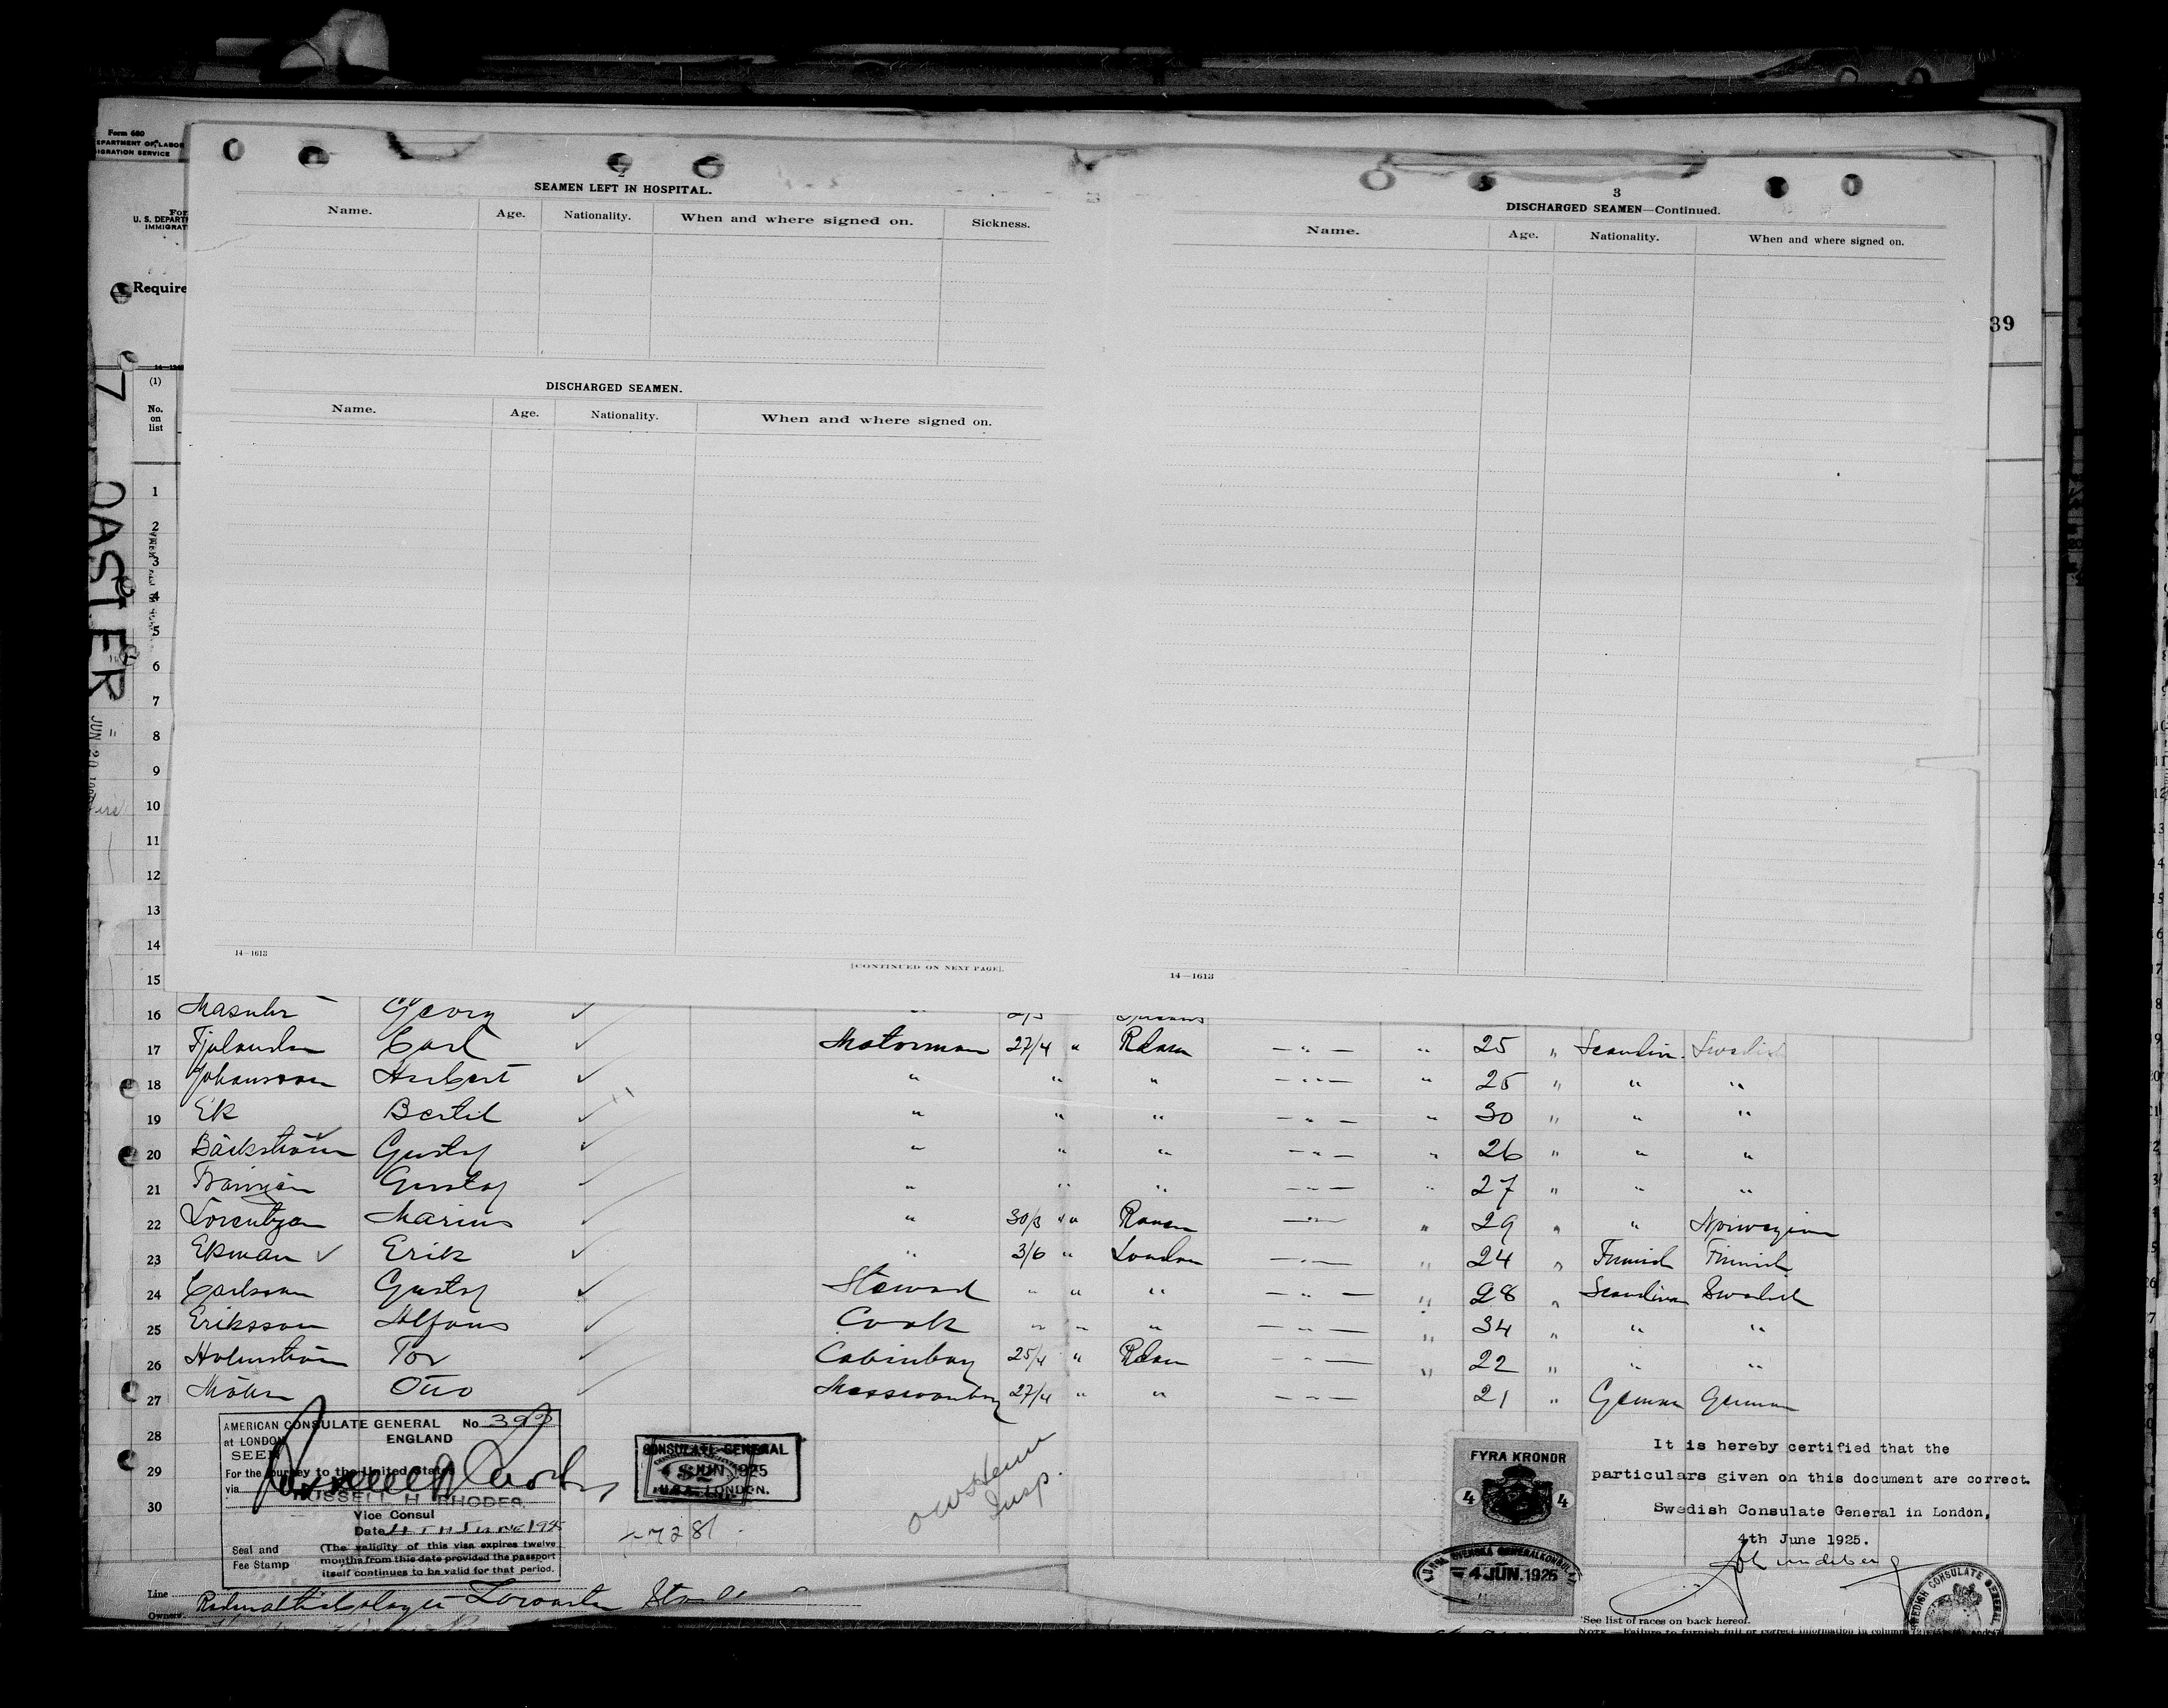 Form 680
IGRATION SERVICE
U. S. DEPART
IMMIGRAT
Require
39
7 OASTER
2
SEAMEN LEFT IN HOSPITAL.
Name. Age. Nationality. When and where signed on. Sickness.
DISCHARGED SEAMEN.
Name. Age. Nationality. When and where signed on.
14—1613
[CONTINUED ON NEXT PAGE].
3
DISCHARGED SEAMEN—Continued.
Name. Age. Nationality. When and where signed on.
14—1613
(1)
No. on list
1
2
3
4
5
6
7
8
9
10
11
12
13
14
15
16 Georg
17 Carl Motorman 27/4 " Rdam —"— " 25 " Scandin. Swedish
18 Johansson Herbert " " " —"— " 25 " " "
19 Ek Bertil " " " —"— " 30 " " "
20 Bäckström Gustaf " " " —"— " 26 " " "
21 Gustaf " " " —"— " 27 " " "
22 Lorentzen Marius " 30/3 " Rouen —"— " 29 " " Norwegian
23 Ekman Erik " 3/6 " London —"— " 24 " Finnish Finnish
24 Carlsson Gustaf Steward " " " —"— " 28 " Scandinav Swedish
25 Eriksson Alfons Cook " " " —"— " 34 " " "
26 Holmström Tor Cabinboy 25/4 " Rdam —"— " 22 " " "
27 Otto Messroomboy 27/4 " " —"— 21 " German German
28
29
30
AMERICAN CONSULATE GENERAL No. 399
at LONDON ENGLAND
SEEN
For the journey to the United States
via
RUSSELL H. RHODES.
Vice Consul
Date 4TH June 1925
Seal and Fee Stamp
(The validity of this visa expires twelve
months from this date provided the passport
itself continues to be valid for that period.
CONSULATE GENERAL
4 JUN. 1925
U.S.A. LONDON.
$2
Insp.
FYRA KRONOR
4 4
SVENSKA GENERALKONSULAT
4 JUN. 1925
It is hereby certified that the
particulars given on this document are correct.
Swedish Consulate General in London,
4th June 1925.
SWEDISH CONSULATE GENERAL
Line
Owners
See list of races on back hereof.
NOTE.—Failure to furnish full or correct information in column